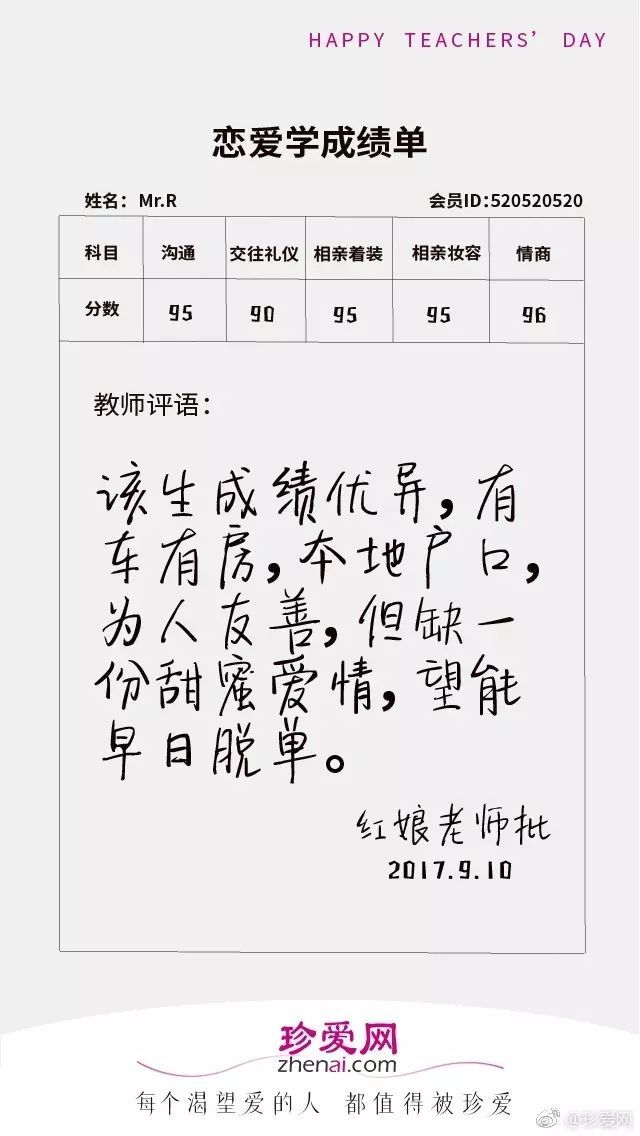 HAPPY TEACHERS' DAY
恋爱学成绩单
姓名：Mr.R 会员ID:520520520
科目 沟通 交往礼仪 相亲着装 相亲妆容 情商
分数 95 90 95 95 96
教师评语：
该生成绩优异，有
车有房，本地户口，
为人友善，但缺一
份甜蜜爱情，望能
早日脱单。
红娘老师批
2017.9.10
珍爱网
zhenai.com
每个渴望爱的人 都值得被珍爱
@珍爱网